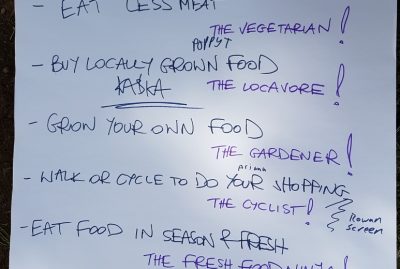 - EAT LESS MEAT
THE VEGETARIAN!
POPPY T
- BUY LOCALLY GROWN FOOD
KASKA THE LOCAVORE!
- GROW YOUR OWN FOOD
THE GARDENER!
prima
- WALK OR CYCLE TO DO YOUR SHOPPING
THE CYCLIST!
Rowan
screen
- EAT FOOD IN SEASON & FRESH
THE FRESH FOOD